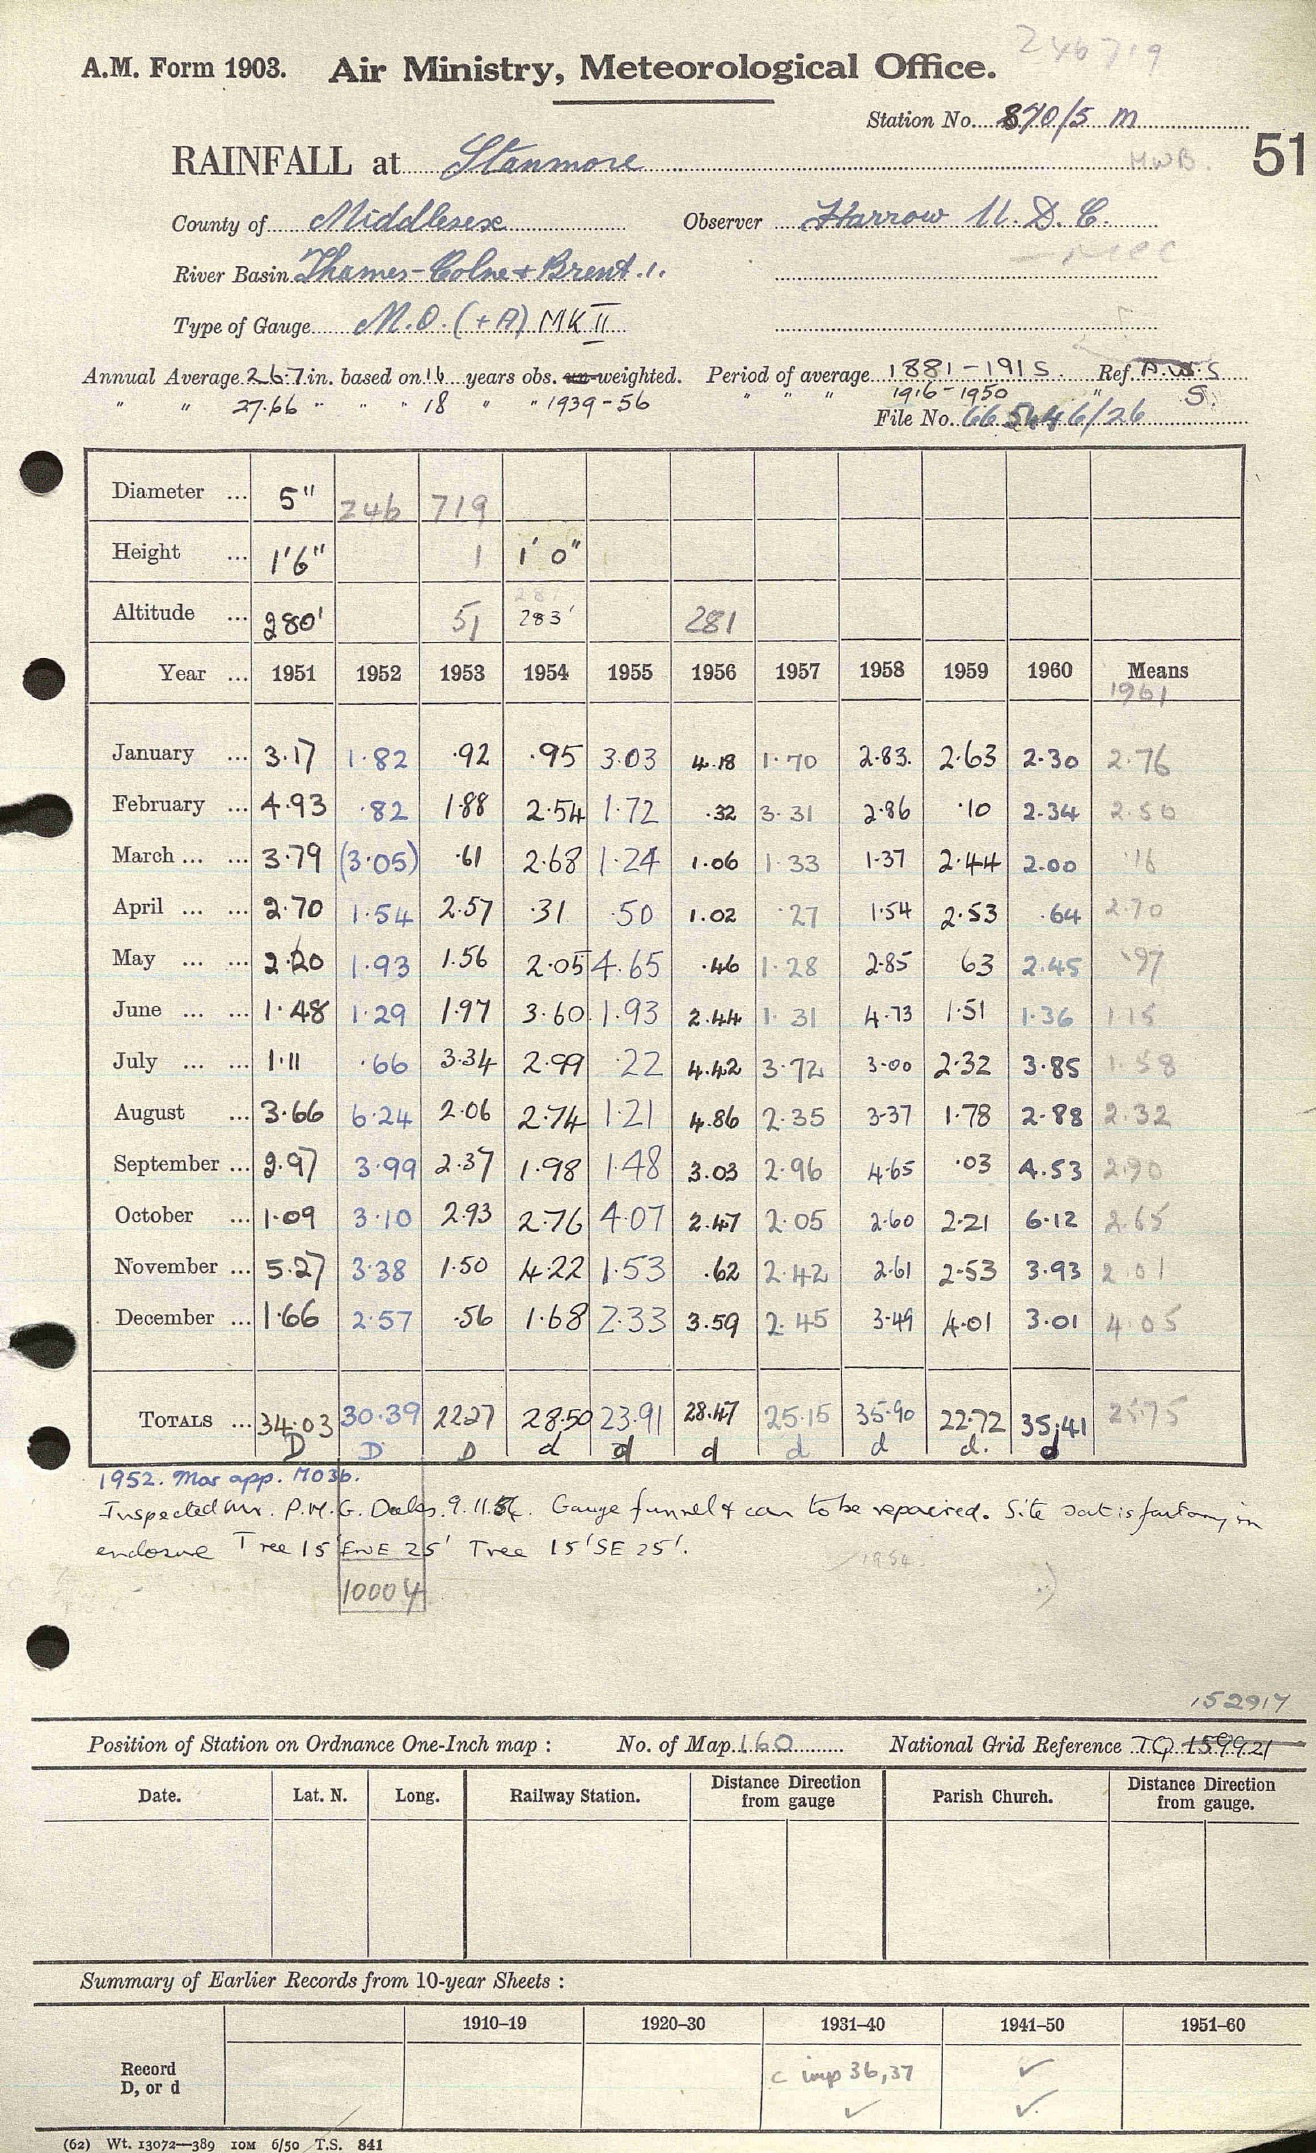 246719
A.M. Form 1903. Air Ministry, Meteorological Office.
Station No. 870/5 m
RAINFALL at Stanmore HWB. 51
County of Middlesex Observer Harrow U.D.C.
River Basin Thames-Colne + Brent.
Type of Gauge M.O. (+A) MK II
Annual Average 26.7 in. based on 16 years obs. un-weighted. Period of average 1881-1915. Ref A.W.S
" " 27.66 " " " 18 " " 1939-56 " " " 1916-1950 " S.
File No. 665446/26
Diameter ... 5" 246 719
Height ... 1'6" 1 1' 0"
Altitude ... 280' 51 283' 281
Year ... 1951 1952 1953 1954 1955 1956 1957 1958 1959 1960 Means
1961
January ... 3.17 1.82 .92 .95 3.03 4.18 1.70 2.83. 2.63 2.30 2.76
February ... 4.93 .82 1.88 2.54 1.72 .32 3.31 2.86 .10 2.34 2.50
March ... ... 3.79 (3.05) .61 2.68 1.24 1.06 1.33 1.37 2.44 2.00 .16
April ... ... 2.70 1.54 2.57 .31 .50 1.02 .27 1.54 2.53 .64 2.70
May ... ... 2.20 1.93 1.56 2.05 4.65 .46 1.28 2.85 63 2.45 .97
June ... ... 1.48 1.29 1.97 3.60 1.93 2.44 1.31 4.73 1.51 1.36 1.15
July ... ... 1.11 .66 3.34 2.99 .22 4.42 3.72 3.00 2.32 3.85 1.58
August ... 3.66 6.24 2.06 2.74 1.21 4.86 2.35 3.37 1.78 2.88 2.32
September ... 2.97 3.99 2.37 1.98 1.48 3.03 2.96 4.65 .03 4.53 2.90
October ... 1.09 3.10 2.93 2.76 4.07 2.47 2.05 2.60 2.21 6.12 2.65
November ... 5.27 3.38 1.50 4.22 1.53 .62 2.42 2.61 2.53 3.93 2.01
December ... 1.66 2.57 .56 1.68 2.33 3.59 2.45 3.49 4.01 3.01 4.05
TOTALS ... 34.03 30.39 22.27 28.50 23.91 28.47 25.15 35.90 22.72 35.41 25.75
D D D d d d d d d. d
1952. Mar app. MO3b.
Inspected Mr. P.M.G. Dales. 9.11.54. Gauge funnel & can to be repaired. Site satisfactory in
enclosure Tree 15' ENE 25' Tree 15' SE 25'.
1954.
10004
152917
Position of Station on Ordnance One-Inch map : No. of Map 160 National Grid Reference TQ 159921
Date. Lat. N. Long. Railway Station. Distance Direction from gauge Parish Church. Distance Direction from gauge.
Summary of Earlier Records from 10-year Sheets :
1910–19 1920–30 1931–40 1941–50 1951–60
Record D, or d c imp 36,37 ✓
✓ ✓
(62) Wt. 13072—389 10M 6/50 T.S. 841